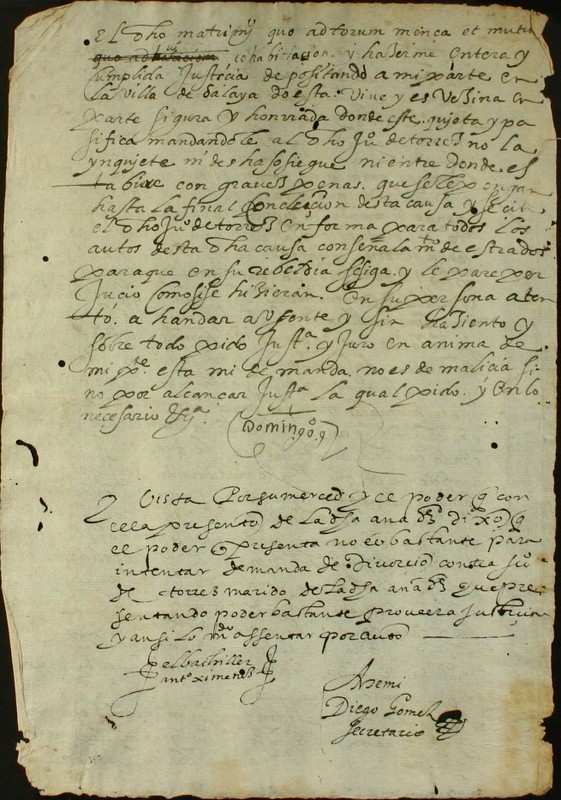 El dho matrimº quo ad torum mença et mutu
quo ad cohabitacion. y haserme entera y
cumplida Justicia depositando a mi parte en
la villa de Salaya do esta. Vive y es Vesina en
parte sigura y honrrada donde este. quieta y pa
sifica mandandole al dho juº de torres no la
ynquiete ni deshasosiegue ni entre donde es
tubiere con graves penas. que se le pongan
hasta la final conclucion desta causa y se cite
el dho juº de torres En forma para todos los
autos desta dha causa con señalamtº de estrados
para que en su rebeldia se siga. y le pare per
Juicio como si se hizieran. En su persona aten
tó. a handar avsente y sin haziento y
sobre todo pido Justª. y Juro en anima de
mi pte. esta mi demanda. no es de malicia si
no por alcançar Justª la qual pido. y en lo
necesario &ª
Domingº. g
Vista Por su merced y el poder q con
ella presento de la dha ana dixo q
el poder q presenta no es bastante para
intentar demanda de divorcio contra juº
de torres marido de la dha ana que pre
sentando poder bastante proveera Justicia
y ansi lo mdo assentar por auto
el bachiller
antº ximenes
Ante mi
Diego Gomez
secretario